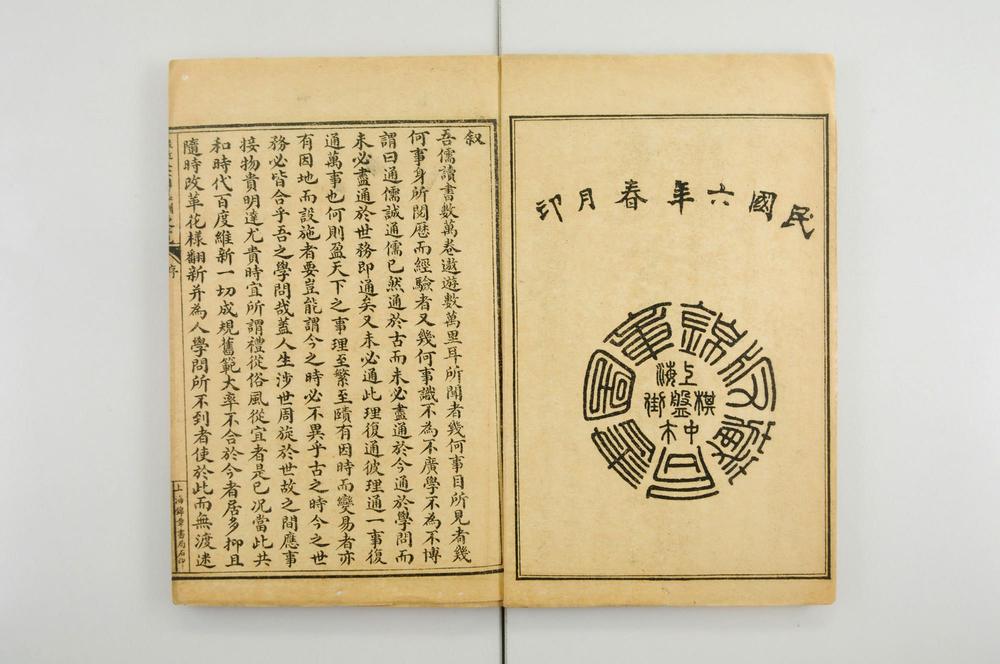 民國六年春月印
錦章圖書局
上海棋盤街中
叙
吾儒讀書數萬卷遨遊數萬里耳所聞者幾何事目所見者幾
何事身所閱歷而經驗者又幾何事識不為不廣學不為不博
謂曰通儒誠通儒已然通於古而未必盡通於今通於學問而
未必盡通於世務即通矣又未必通此理復通彼理通一事復
通萬事也何則盈天下之事理至繁至賾有因時而變易者亦
有因地而設施者要豈能謂今之時必不異乎古之時今之世
務必皆合乎吾之學問哉蓋人生涉世周旋於世故之間應事
接物貴明達尤貴時宜所謂禮從俗風從宜者是已况當此共
和時代百度維新一切成規舊範大率不合於今者居多抑且
隨時改革花樣翻新并為人學問所不到者使於此而無渡迷
序
上海錦章書局石印